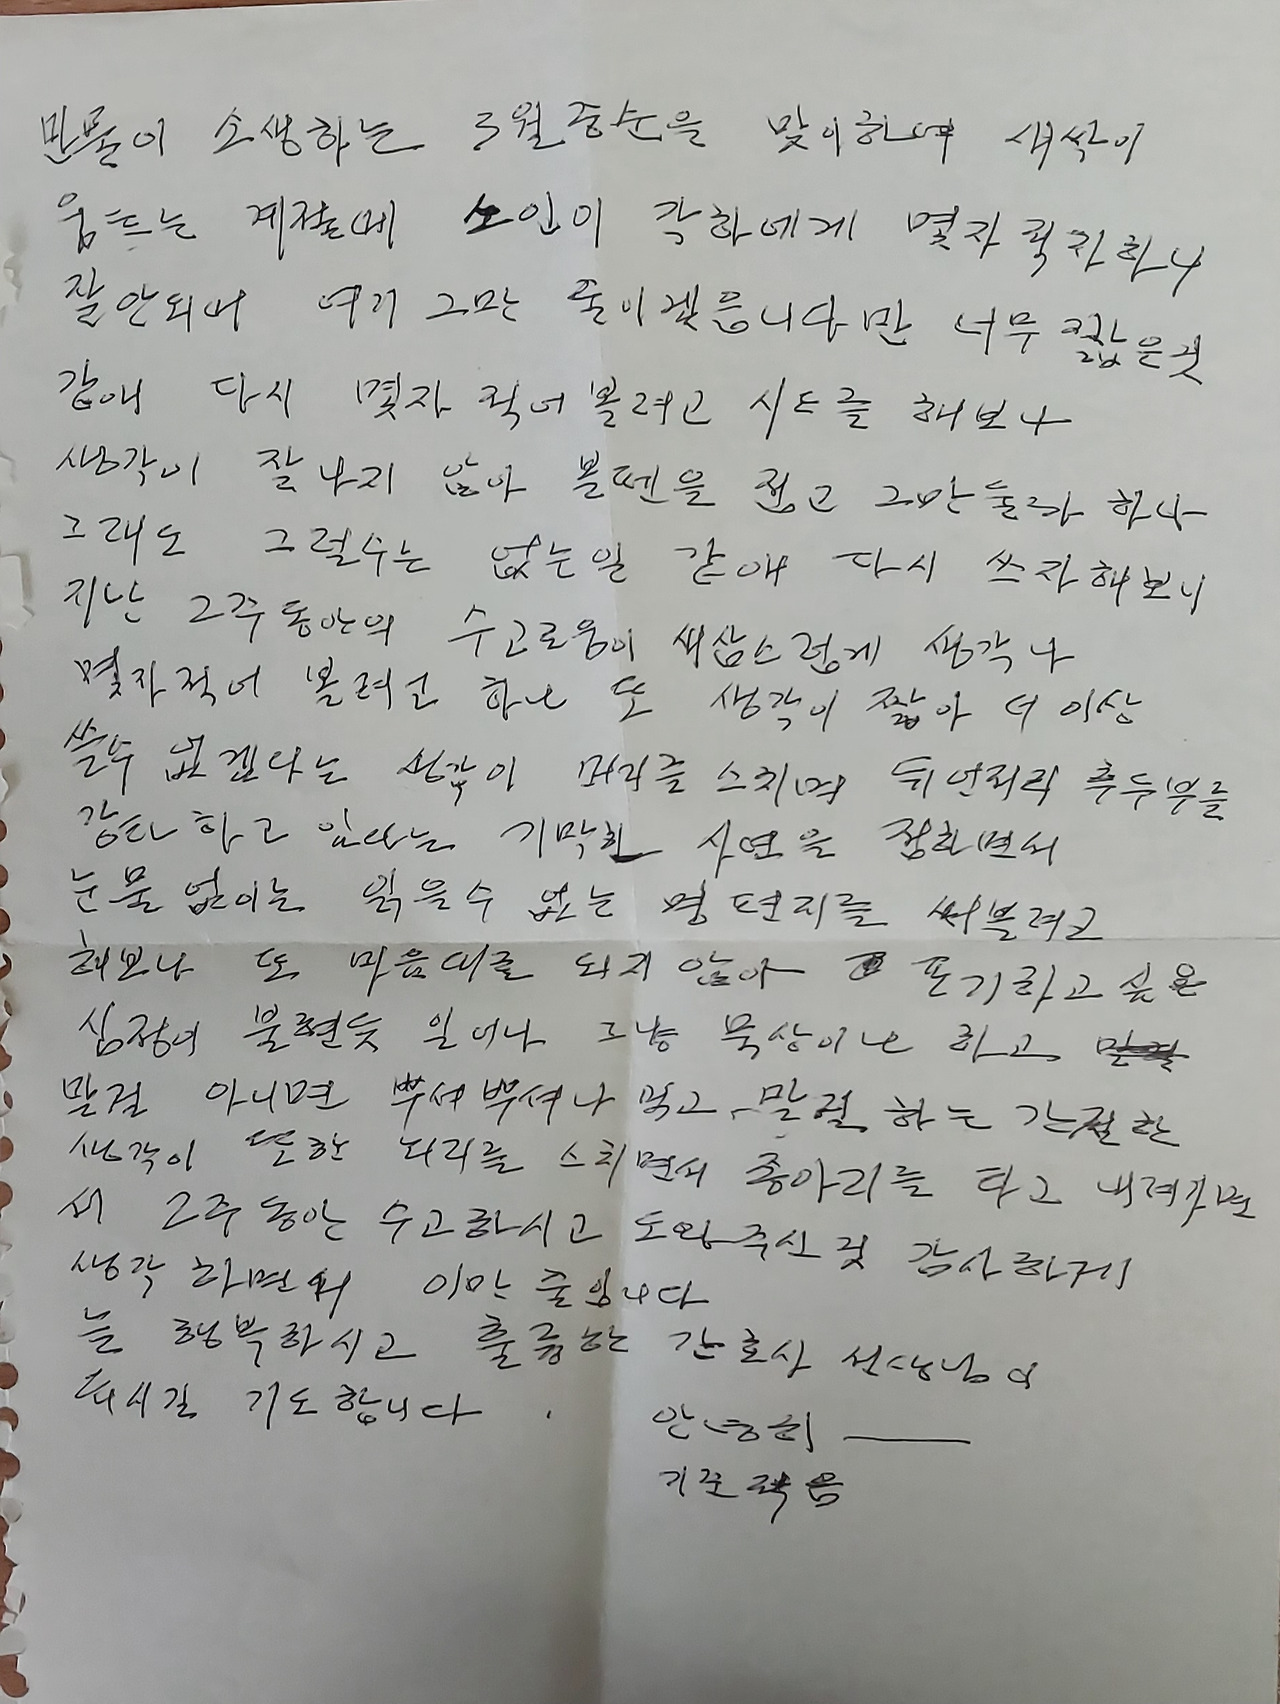 만물이 소생하는 3월중순을 맞이하여 새싹이
움트는 계절에 소인이 각하에게 몇자 적자하니
잘안되어 여기 그만 줄이겠읍니다만 너무 짧은것
같애 다시 몇자 적어볼려고 시도를 해보나
생각이 잘나지 않아 볼펜을 접고 그만둘라 하나
그래도 그럴수는 없는일 같애 다시 쓰자해보니
지난 2주동안의 수고로움이 새삼스럽게 생각나
몇자적어 볼려고 하나 또 생각이 짧아 더이상
쓸수 없겠다는 생각이 머리를 스치며 뒤언저리 후두부를
강타하고 있다는 기막힌 사연을 접하면서
눈물없이는 읽을수 없는 명편지를 써볼려고
해보나 또 마음대로 되지 않아 포기하고 싶은
심정이 불현듯 일어나 그냥 묵상이나 하고
말걸 아니면 뿌셔뿌셔나 먹고 말걸 하는 간절한
생각이 또한 뇌리를 스치면서 종아리를 타고 내려가면
서 2주동안 수고하시고 도와주신 것 감사하게
생각하면서 이만 줄입니다
늘 행복하시고 훌륭한 간호사 선생님이
되시길 기도합니다.
안녕히 ―